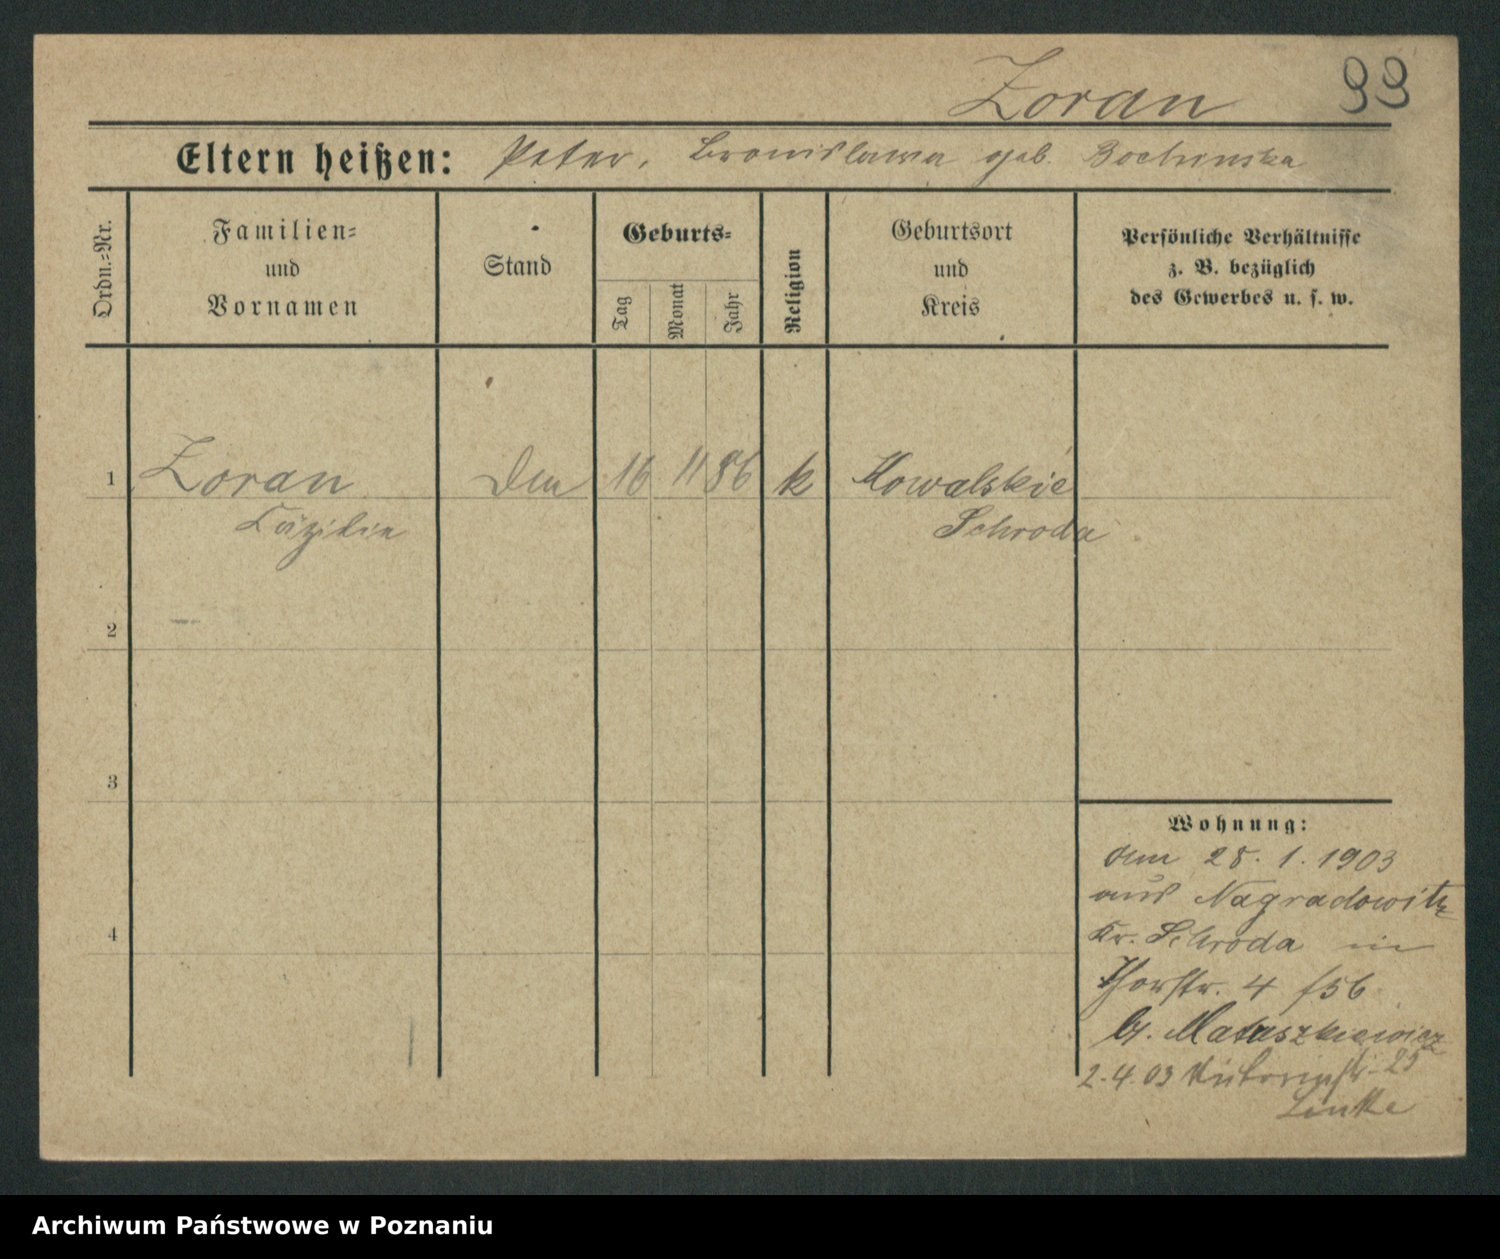 Zoran
99
Eltern heißen: Peter, Bronislawa geb. Bochinska
Ordn.-Nr.
Familien-
und
Vornamen
Stand
Geburts-
Tag
Monat
Jahr
Religion
Geburtsort
und
Kreis
Persönliche Verhältnisse
z. B. bezüglich
des Gewerbes u. s. w.
1 Zoran 16 11 86 k Kowalskie
Cäzilie Schroda
2
3
4
Wohnung:
28. 1. 1903
aus Nagradowitz
Kr. Schroda in
Thorstr. 4
b/. Matuszkiewicz
2.4.03 Viktoriastr. 25
Linke
Archiwum Państwowe w Poznaniu